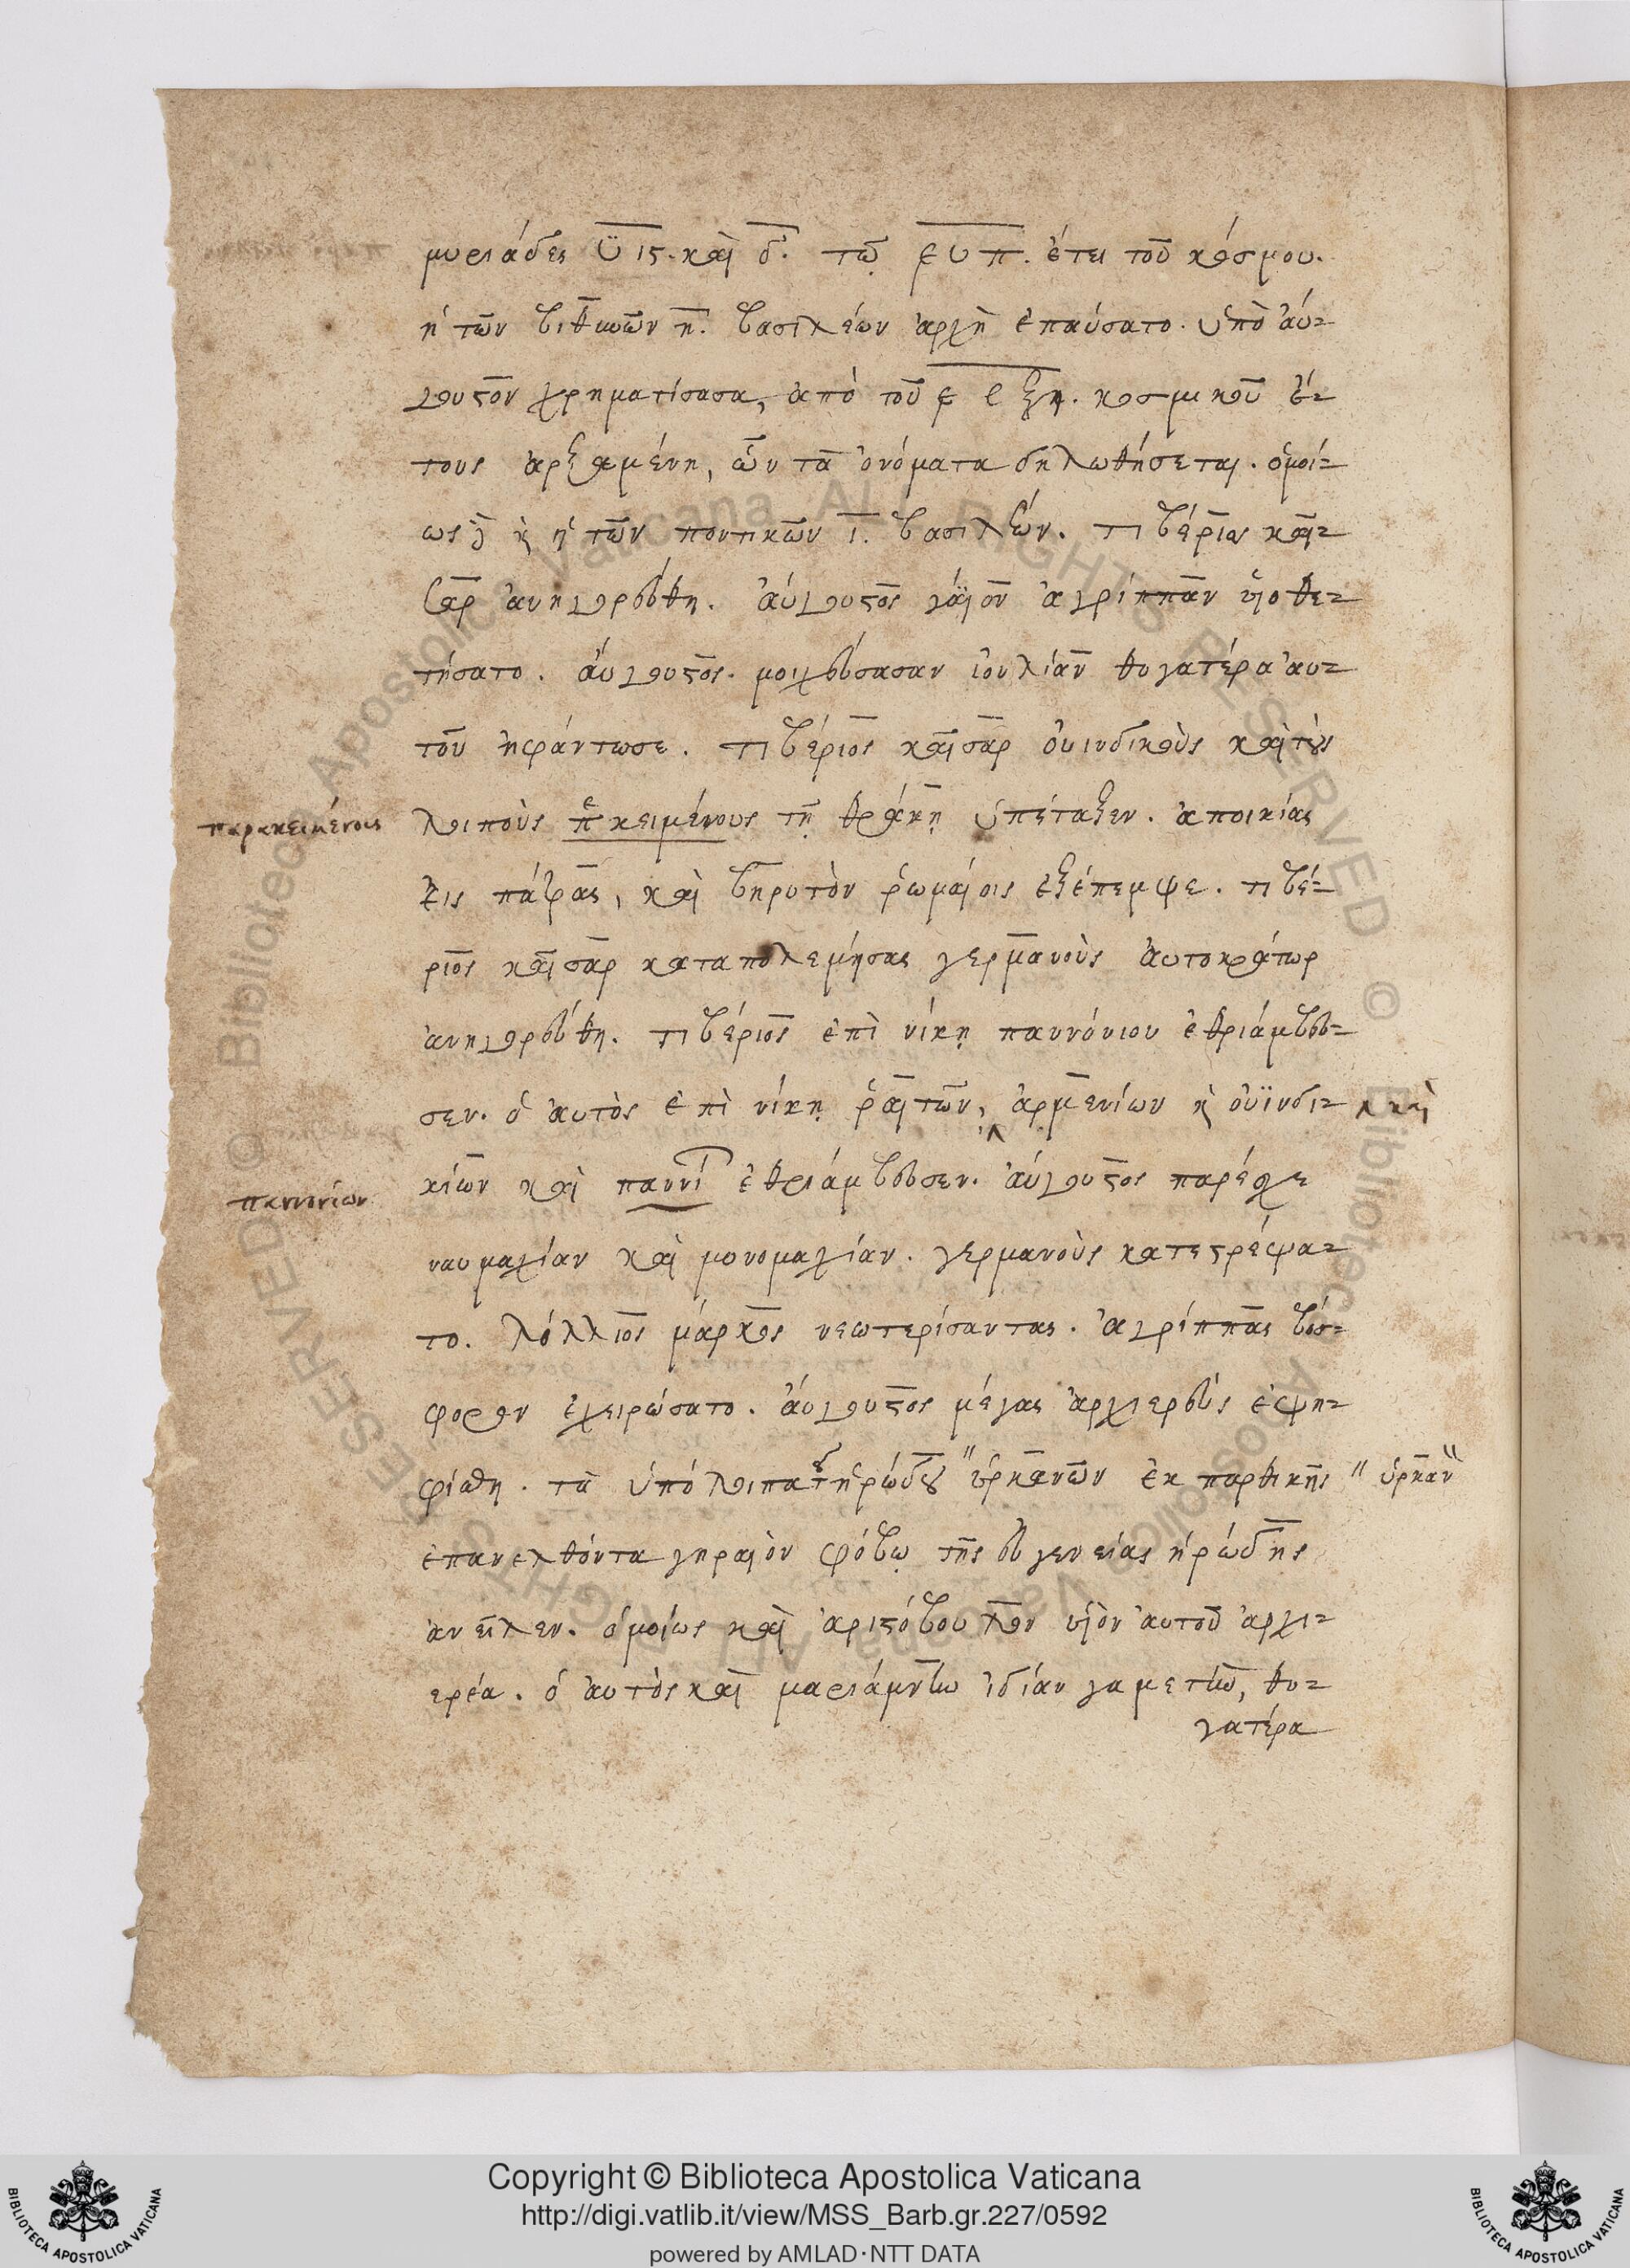 μυριάδες υ̅ι̅ϛ̅. καὶ δ̅. τῷ ͵ε̅υ̅π̅. ἔτει τοῦ κόσμου.
ἡ τῶν βιθυνῶν η̅. βασιλέων ἀρχὴ ἐπαύσατο. ὑπὸ ἀύ-
γουστον χρηματίσασα, ἀπὸ τοῦ κοσμικοῦ ἔ-
τους ἀρξαμένη, ὧν τὰ ὀνόματα δηλωθήσεται. ὁμοί-
ως δὲ καὶ ἡ τῶν ποντικῶν ι̅. βασιλέων. τιβέριος καῖ-
σαρ ἀνηγορεύθη. ἀύγουστος γάϊον ἀγρίππαν υἱοθε-
τήσατο. ἀύγουστος. μοιχεύσασαν ἰουλίαν θυγατέρα αὐ-
τοῦ ἠφάντωσε. τιβέριος καῖσαρ ὀυινδικοὺς καὶ τοὺς
παρακειμένους λοιποὺς π κειμένους τῇ θράκῃ ὑπέταξεν. ἀποικίας
εἰς πάτρας, καὶ βηρυτὸν ῥωμαίοις ἐξέπεμψε. τιβέ-
ριος καῖσαρ καταπολεμήσας γερμανοὺς ἀυτοκράτωρ
ἀνηγορεύθη. τιβέριος ἐπὶ νίκῃ παννόνιου ἐθριάμβευ-
σεν. ὁ ἀυτὸς ἐπὶ νίκῃ ῥαιτῶν, ‸ ἀρμενίων καὶ ὀυϊνδι- ‸ καὶ
κίων καὶ παννί ἐθριάμβευσεν. ἀύγουστος παρέσχε
παννονίων
ναυμαχίαν καὶ μονομαχίαν. γερμανοὺς κατεστρέψα-
το. λόλλιος μάρκος νεωτερίσαντας. ἀγρίππας βόσ-
φορον ἐχειρώσατο. ἀύγουστος μέγας ἀρχιερεὺς ἐψη-
φίσθη. τὰ ὑπόλοιπα τοῦ ἡρώδου " ὑρκανῶν ἐκ παρθικῆς " ὑρκαν "
ἐπανελθόντα γηραιὸν φόβῳ τῆς εὐγενείας ἡρώδης
ἀνεῖλεν. ὁμοίως καὶ ἀριστόβουλον υἱὸν ἀυτοῦ ἀρχι-
ερέα. ὁ ἀυτὸς καὶ μαριάμνην ἰδίαν γαμετὴν, θυ-
γατέρα
Copyright © Biblioteca Apostolica Vaticana
http://digi.vatlib.it/view/MSS_Barb.gr.227/0592
powered by AMLAD·NTT DATA
BIBLIOTECA APOSTOLICA VATICANA
BIBLIOTECA APOSTOLICA VATICANA